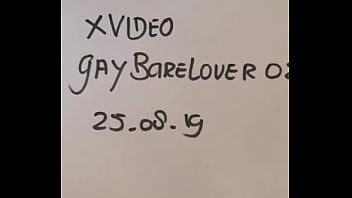 XVIDEO
GAYBARELOVER 02
25.08.19